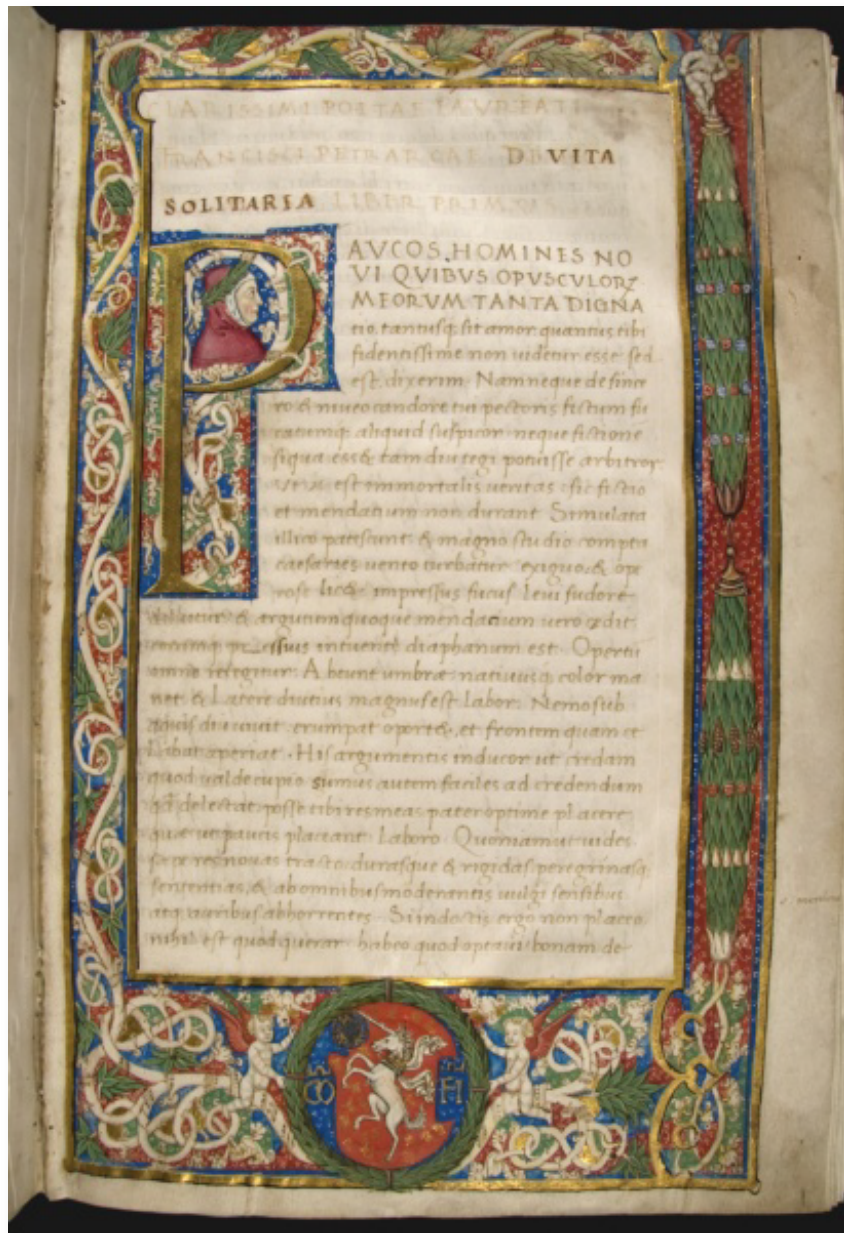 CLARISSIMI POETAE LAVREATI
FRANCISCI PETRARCAE DE VITA
SOLITARIA LIBER PRIMVS
PAVCOS HOMINES NO
VI QVIBVS OPVSCVLORꝜ
MEORVM TANTA DIGNA
tio. tantusq; sit amor quantus tibi
fidentissime non uidetur esse sed
est. dixerim. Nam neque de since
ro & niueo candore tui pectoris fictum fu
catumq; aliquid suspicor neque fictione
siqua ess& tam diu tegi potuisse arbitror
est immortalis ueritas sic fictio
et mendatium non durant Simulata
illico patescunt & magno studio compta
caesaries uento turbatur exiguo. & ope
rose lic& impressus fucus leui sudore
& argutum quoque mendatium uero cedit
intuenti diaphanum est. Opertu
omne retegitur. Abeunt umbrae natiuusq; color ma
net & Latere diutius magnus est labor. Nemo sub
aquis diu uiuit erumpat oport&, et frontem quam ce
labat aperiat. His argumentis inducor ut credam
quod ualde cupio sumus autem faciles ad credendum
delectat posse tibi res meas pater optime placere
quae ut paucis placeant Laboro Quoniam ut uides
sepe res nouas tracto durasque & rigidas peregrinasq;
sententias, & ab omnibus moderantis uulgi sensibus
atq; auribus abhorrentes. Si indoctis ergo non placeo
nihil est quod querar habeo quod optaui bonam de